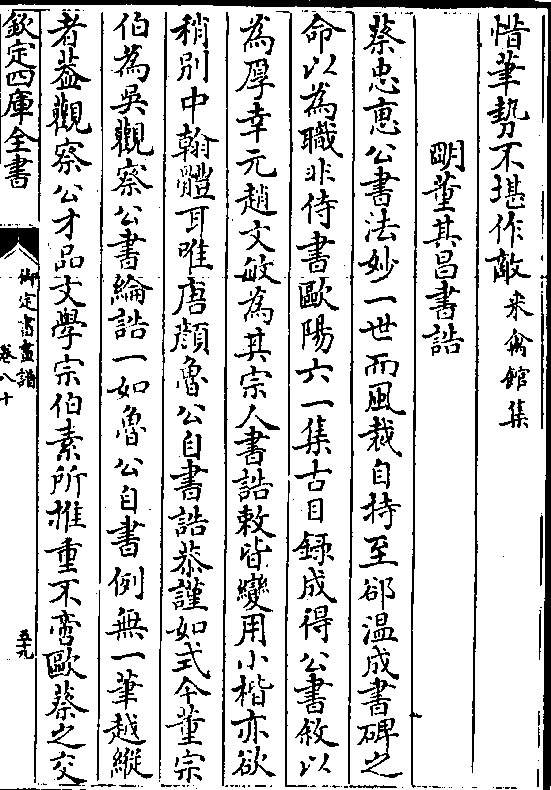 惜筆勢不堪作敵來禽館集
明董其昌書誥
蔡忠惠公書法妙一世而風裁自持至郤温成書碑之
命以為職非侍書歐陽六一集古目録成得公書敘以
為厚幸元趙文敏為其宗人書誥敕皆變用小楷亦欲
稍别中翰體耳唯唐顔魯公自書誥恭謹如式今董宗
伯為吳觀察公書綸誥一如魯公自書例無一筆越縱
者葢觀察公才品文學宗伯素所推重不啻歐蔡之交
欽定四庫全書
御定書畫譜
卷八十
五十九